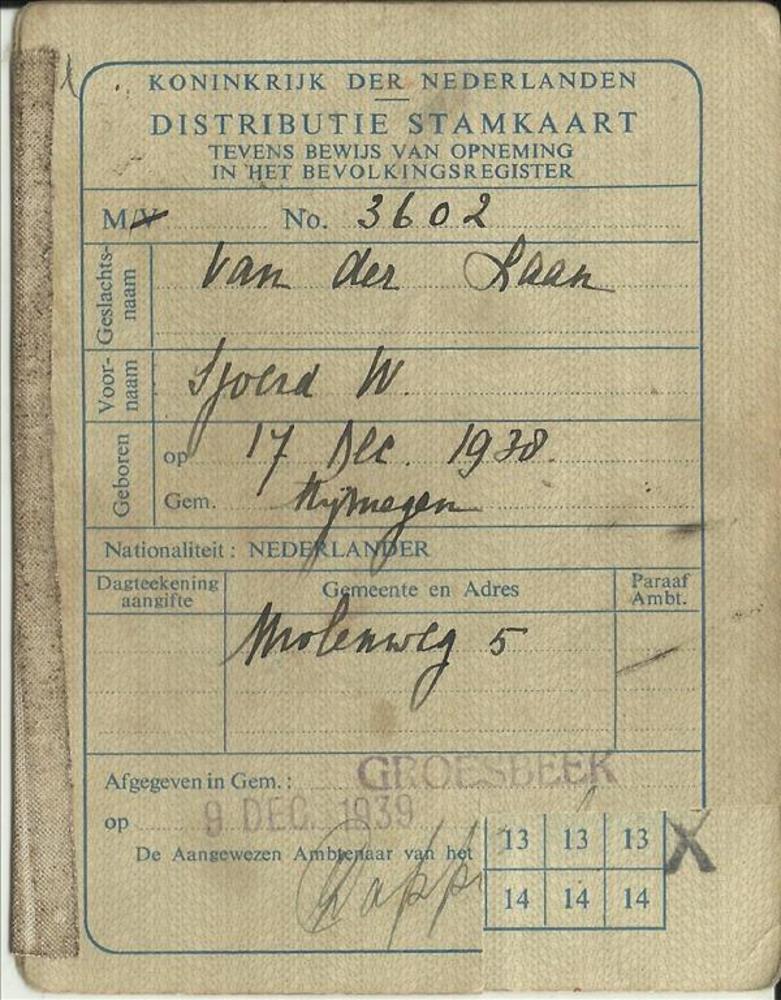 KONINKRIJK DER NEDERLANDEN
DISTRIBUTIE STAMKAART
TEVENS BEWIJS VAN OPNEMING
IN HET BEVOLKINGSREGISTER
M/V No. 3602
Geslachts-
naam
van der Laan
Voor-
naam
Sjoerd W.
Geboren
op 17 Dec. 1938.
Gem. Nijmegen
Nationaliteit : NEDERLANDER
Dagteekening
aangifte
Gemeente en Adres
Paraaf
Ambt.
Molenweg 5
Afgegeven in Gem. : GROESBEEK
op 9 DEC. 1939
De Aangewezen Ambtenaar van het
13 13 13 X
14 14 14